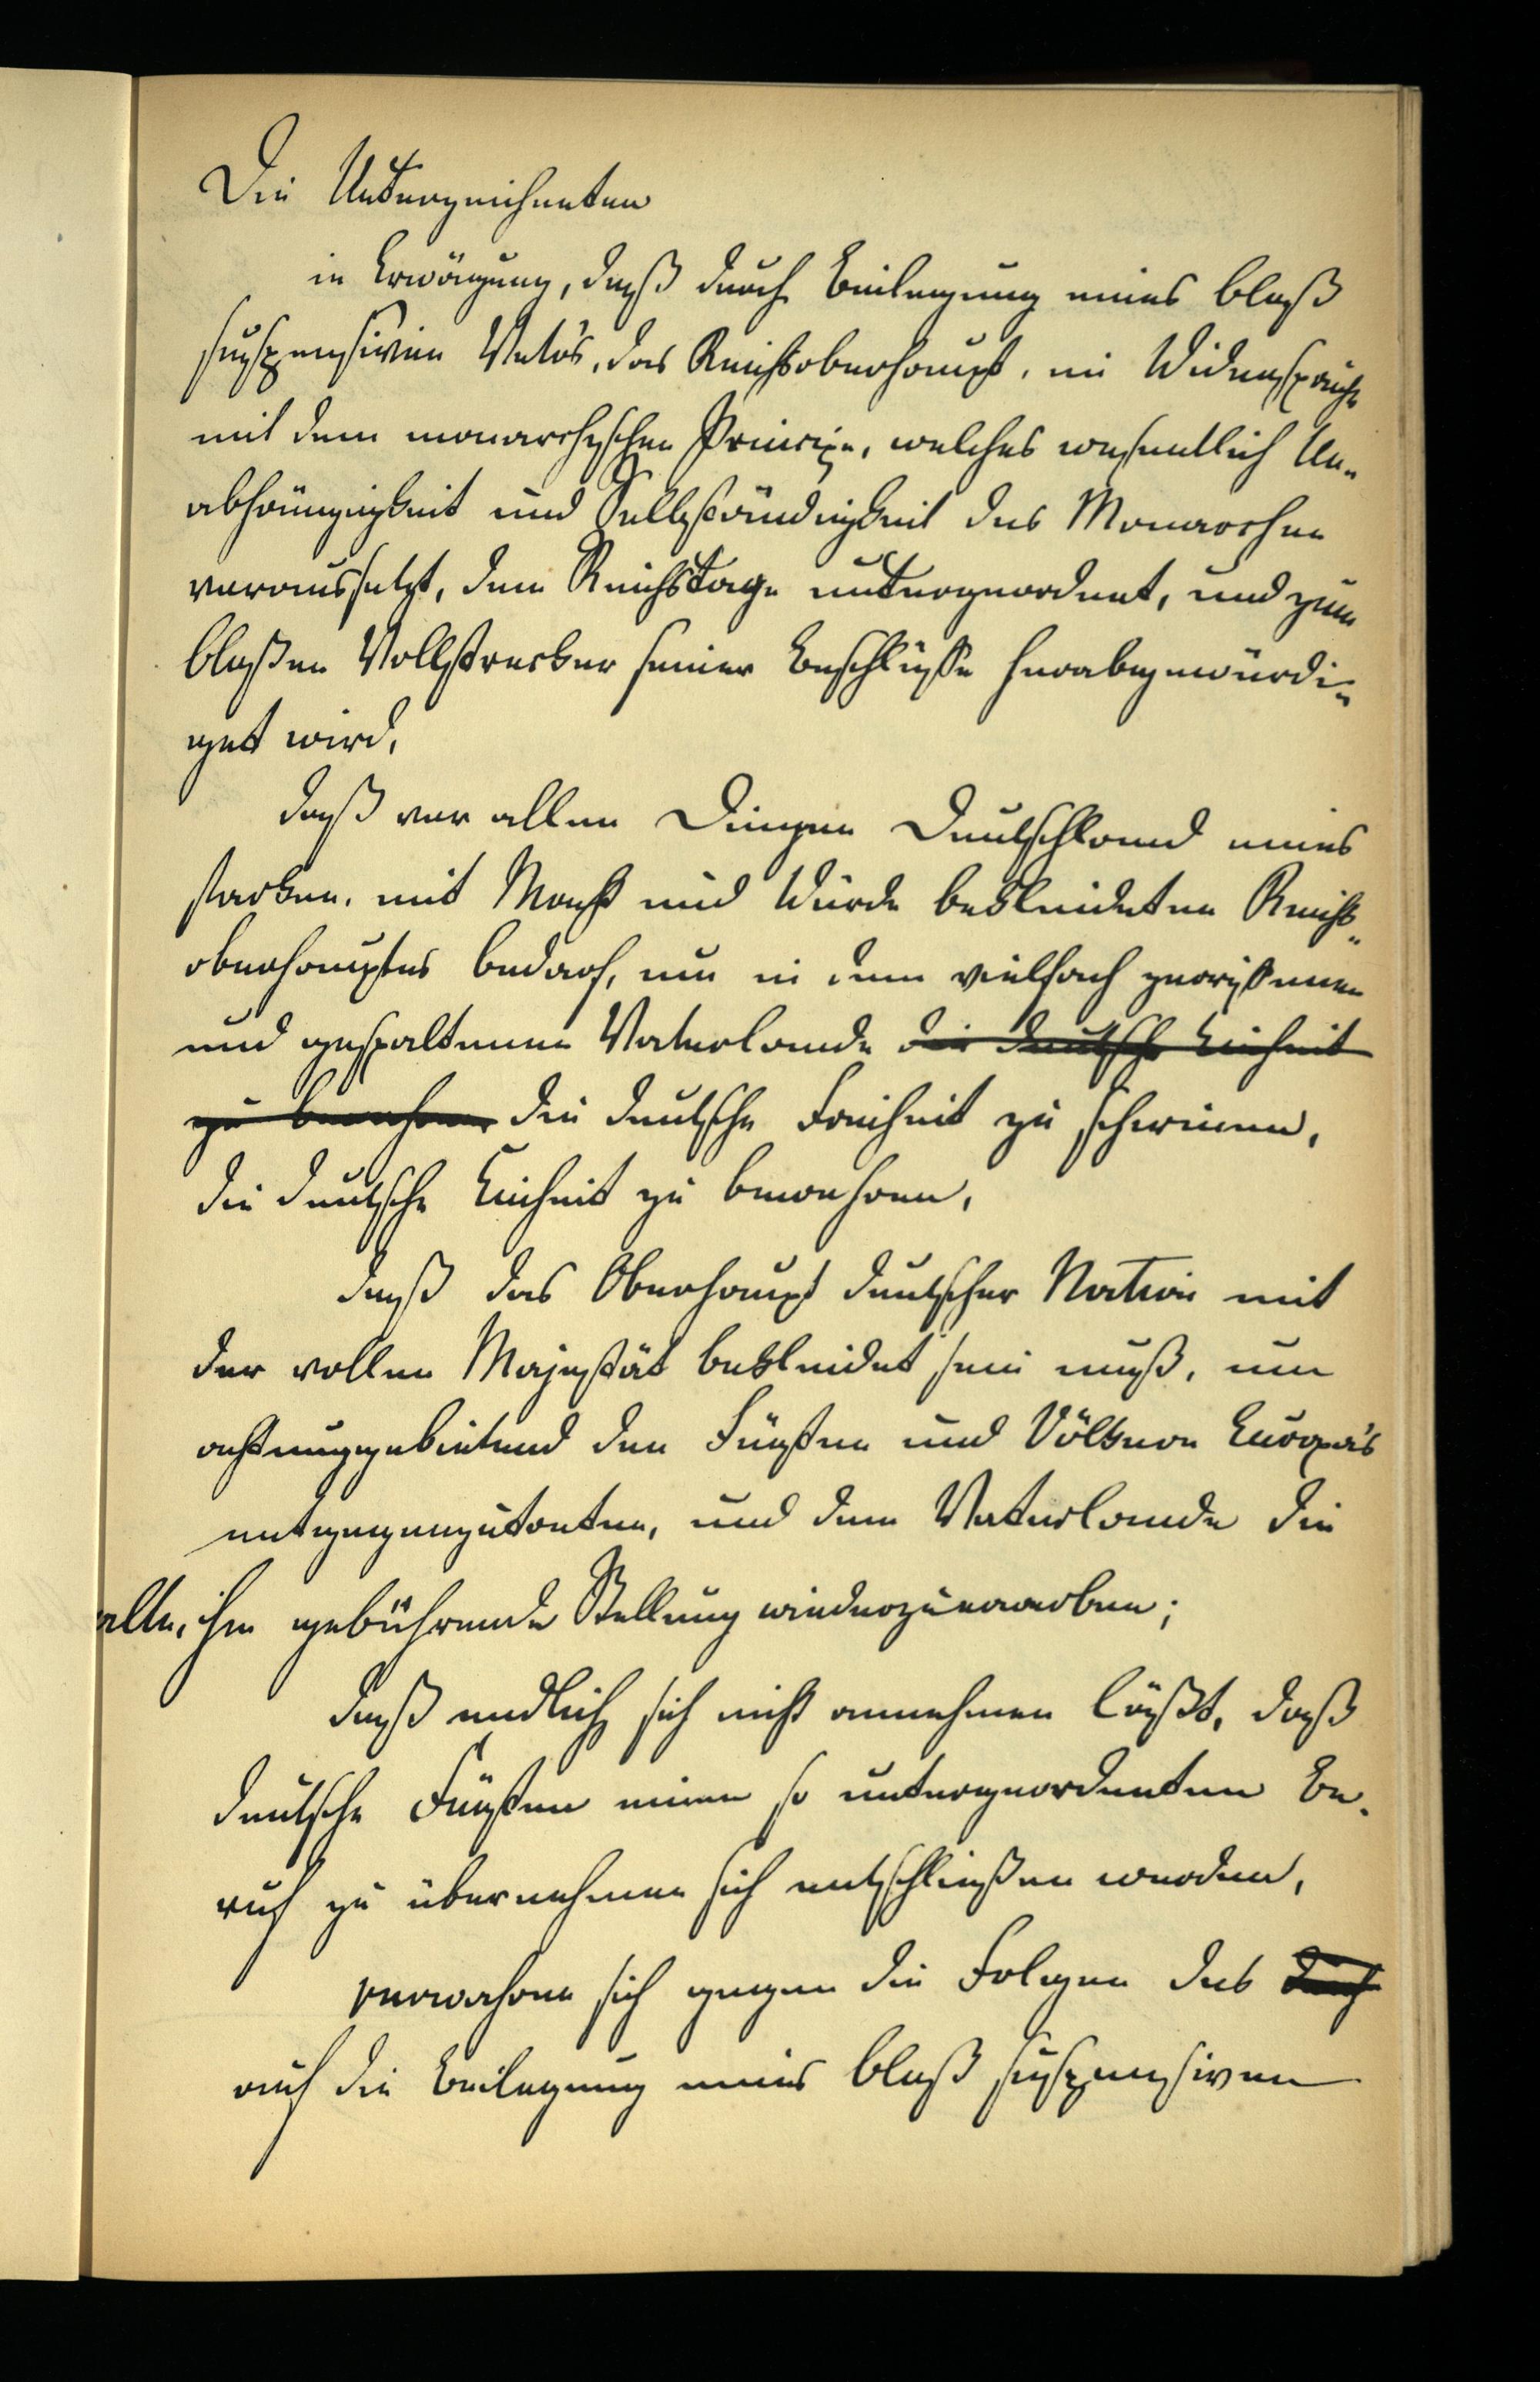 Die Unterzeichneten
in Erwägung, daß durch Beilegung eines bloß
suspensiven Veto's, das Reichsoberhaupt, im Widerspruche
mit dem monarchischen Principe, welches wesentlich Un-
abhängigkeit und Selbständigkeit des Monarchen
voraussetzt, dem Reichstage untergeordnet, und zum
bloßen Vollstrecker seiner Beschlüsse herabgewürdi-
get wird,
daß vor allen Dingen Deutschland eines
starken, mit Macht und Würde bekleideten Reichs-
oberhauptes bedarf, um in dem vielfach zerrissenen
und gespaltenen Vaterlande die deutsche Einheit
zu bewahren die deutsche Freiheit zu schirmen,
die deutsche Einheit zu bewahren,
daß das Oberhaupt deutscher Nation mit
der vollen Majestät bekleidet sein muß, um
achtunggebietend den Fürsten und Völkern Europa's
entgegenzutreten, und dem Vaterlande die
alte, ihm gebührende Stellung wiederzuerwerben;
daß endlich sich nicht annehmen läßt, daß
deutsche Fürsten einen so untergeordneten Be-
ruf zu übernehmen sich entschließen werden,
verwahren sich gegen die Folgen des durch
auf die Beilegung eines bloß suspensiven